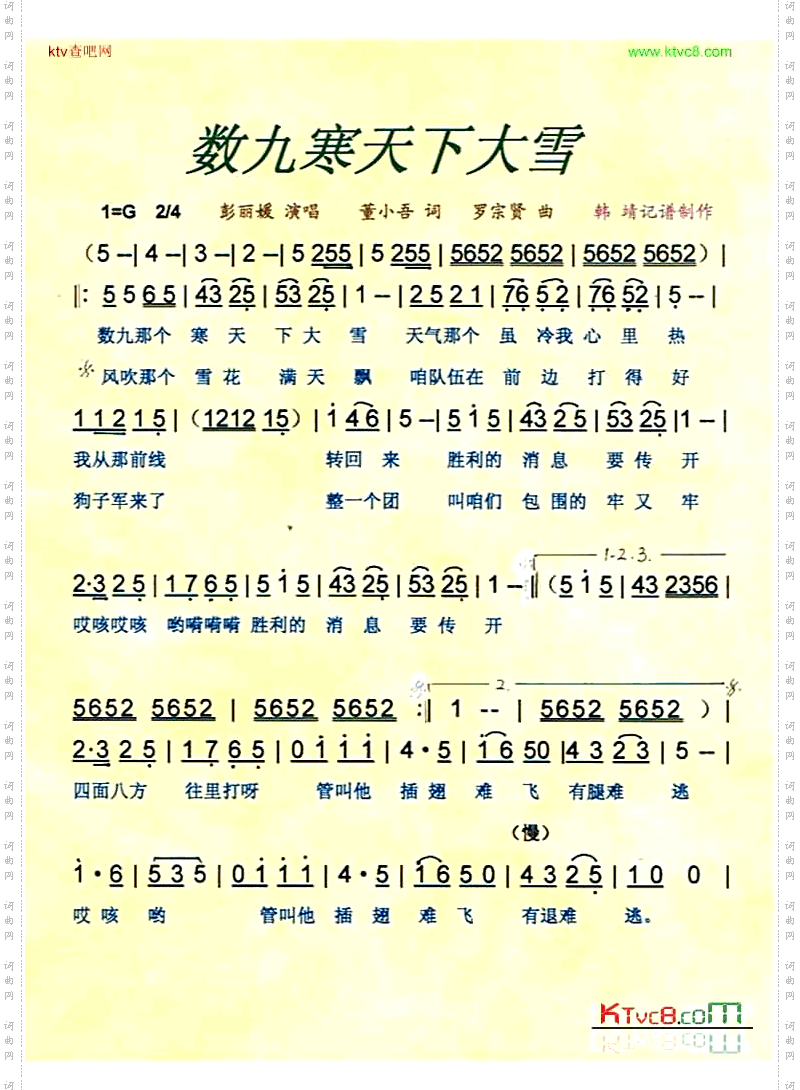 ktv查吧网 www.ktvc8.com
数九寒天下大雪
1=G 2/4 彭丽媛 演唱 董小吾 词 罗宗贤 曲 韩 靖记谱制作
（5 --| 4 --| 3 --| 2 --| 5 255 | 5 255 | 5652 5652 | 5652 5652）|
‖: 5 5 6 5 | 43 25 | 53 25 | 1 -- | 2 5 2 1 | 76 5 2 | 76 52 | 5 -- |
数九那个 寒 天 下 大 雪 天气那个 虽 冷我 心 里 热
风吹那个 雪 花 满 天 飘 咱队伍在 前 边 打 得 好
1 12 1 5 |（1212 15）| i 4 6 | 5 --| 5 i 5 | 43 2 5 | 53 25 |1 --|
我从那前线 转回 来 胜利的 消 息 要 传 开
狗子军来了 整一个团 叫咱们 包 围的 牢 又 牢
1·2·3.
2·3 2 5 | 1 7 6 5 | 5 i 5 | 43 25 | 53 25 | 1 --‖（5 i 5 | 43 2356 |
哎咳哎咳 哟嗬嗬嗬 胜利的 消 息 要 传 开
2.
5652 5652 | 5652 5652 :‖ 1 -- | 5652 5652 ）|
2·3 2 5 | 1 7 6 5 | 0 i i i | 4·5 | i 6 50 |4 3 2 3 | 5 --|
四面八方 往里打呀 管叫他 插 翅 难 飞 有腿难 逃
（慢）
i·6 | 5 3 5 | 0 i i i | 4·5 | i 6 5 0 | 4 3 2 5 | 1 0 0 |
哎 咳 哟 管叫他 插 翅 难 飞 有退难 逃。
KTvc8.com